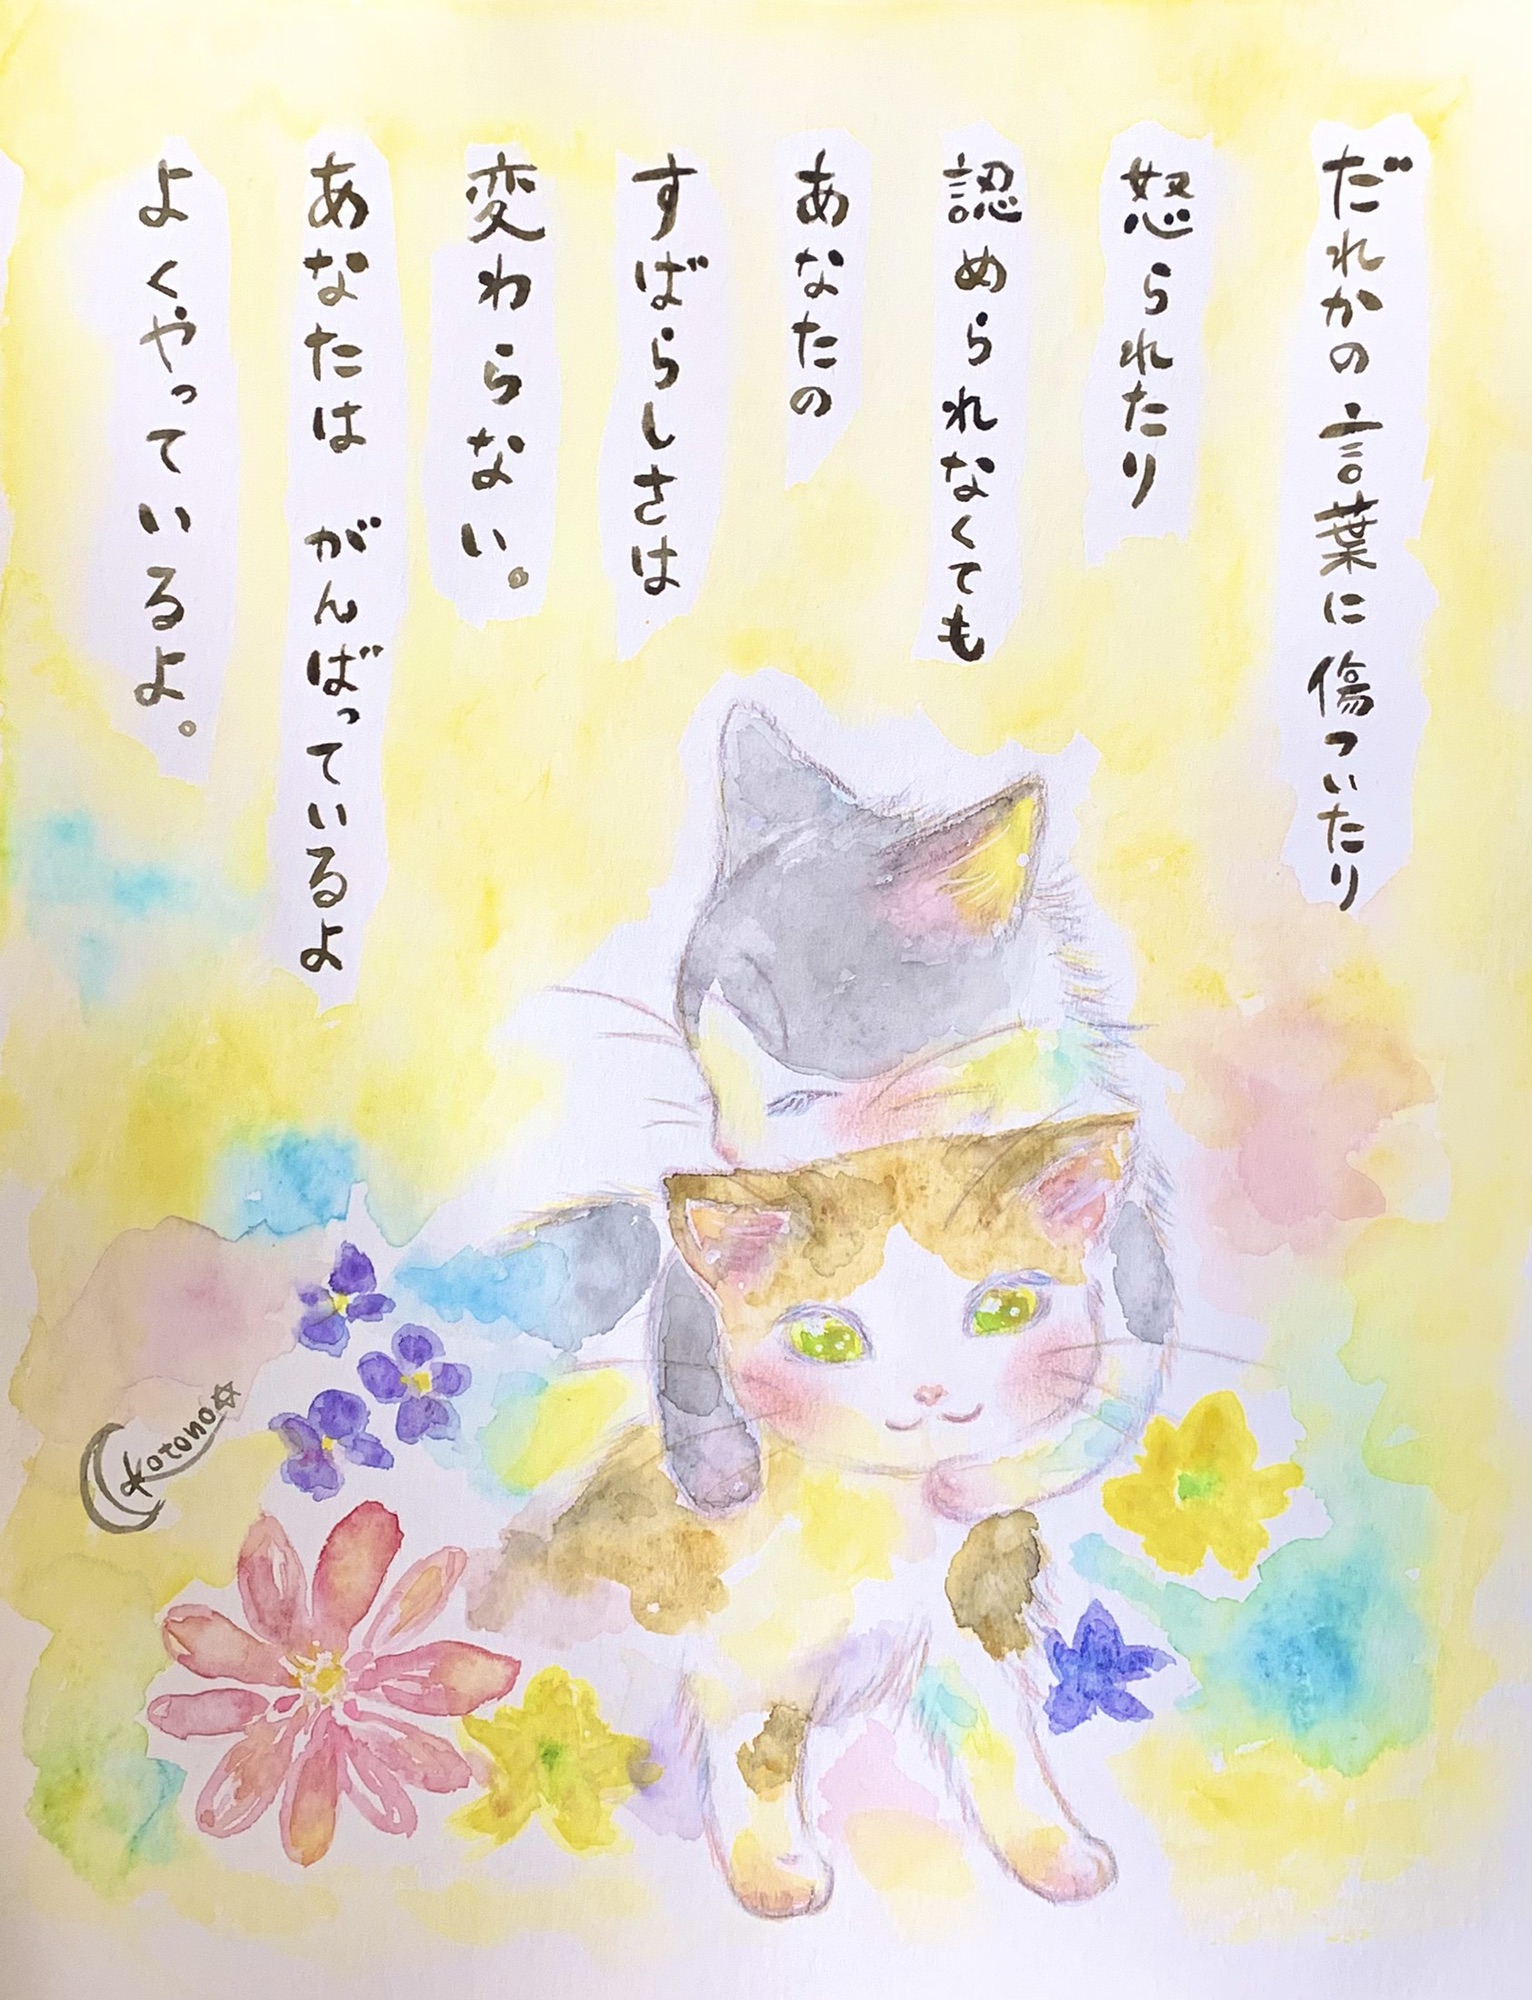 だれかの言葉に傷ついたり
怒られたり
認められなくても
あなたの
すばらしさは
変わらない。
あなたは がんばっているよ
よくやっているよ。
kotono